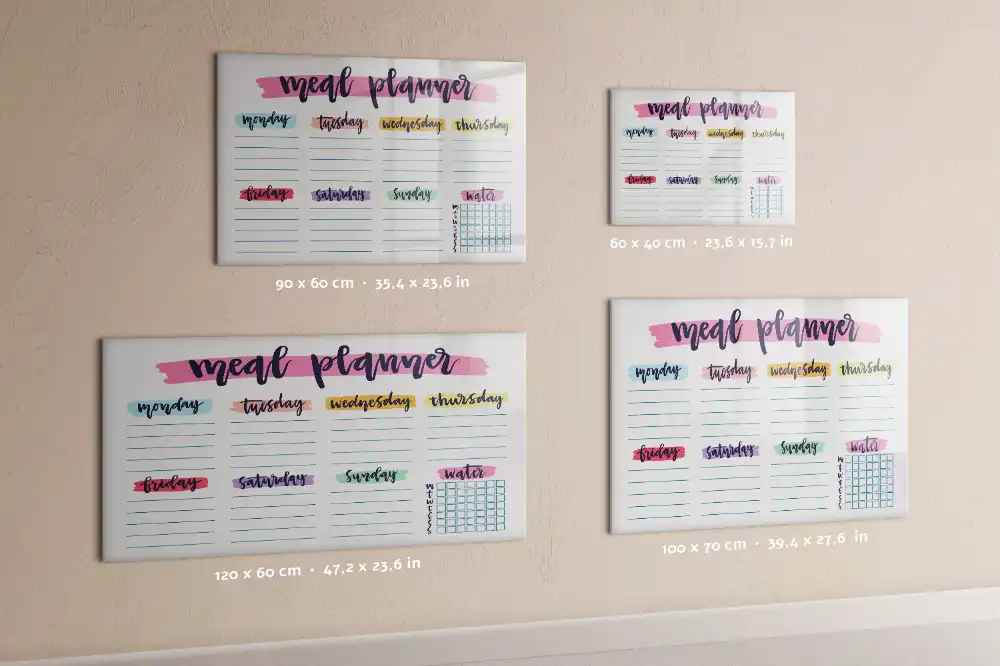 meal planner
monday tuesday wednesday thursday
friday saturday sunday water
M
T
W
T
F
S
S
90 x 60 cm · 35,4 x 23,6 in
meal planner
monday tuesday wednesday thursday
friday saturday sunday water
60 x 40 cm · 23,6 x 15,7 in
meal planner
monday tuesday wednesday thursday
friday saturday sunday water
M
T
W
T
F
S
S
120 x 60 cm · 47,2 x 23,6 in
meal planner
monday tuesday wednesday thursday
friday saturday sunday water
M
T
W
T
F
S
S
100 x 70 cm · 39,4 x 27,6 in